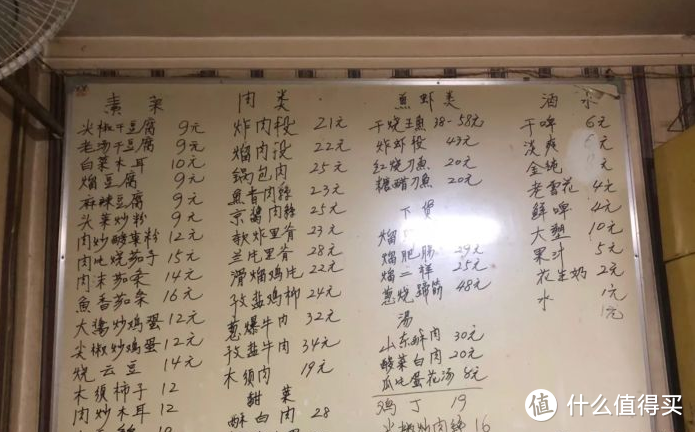 素菜
尖椒干豆腐 9元
老汤干豆腐 9元
白菜木耳 10元
熘豆腐 9元
麻辣豆腐 9元
头菜炒粉 9元
肉炒酸菜粉 12元
肉炖烧茄子 15元
肉沫茄条 14元
魚香茄条 16元
大醬炒鸡蛋 12元
尖椒炒鸡蛋 12元
烧云豆 14元
木须柿子 12
肉炒木耳 12
肉类
炸肉段 21元
熘肉段 22元
鍋包肉 25元
魚香肉絲 23元
京醬肉絲 25元
软炸里脊 23元
兰花里脊 28元
滑熘鸡片 22元
孜盐鸡柳 24元
葱爆牛肉 32元
孜盐牛肉 34元
木须肉 19元
甜菜
酥白肉 28
魚虾类
干烧王魚 38-58元
炸虾段 43元
红烧刀魚 20元
糖醋刀魚 20元
下货
熘
熘肥肠 29元
熘二样 25元
葱烧蹄筋 48元
湯
山东酥肉 30元
酸菜白肉 20元
瓜片蛋花汤 8元
鸡丁 19
尖椒炒肉絲 16
酒水
干啤 6元
淡爽 元
金纯 元
老雪花 4元
鮮啤 4元
大塑 10元
果汁 5元
花生奶 2元
水 1元
1元
值 什么值得买